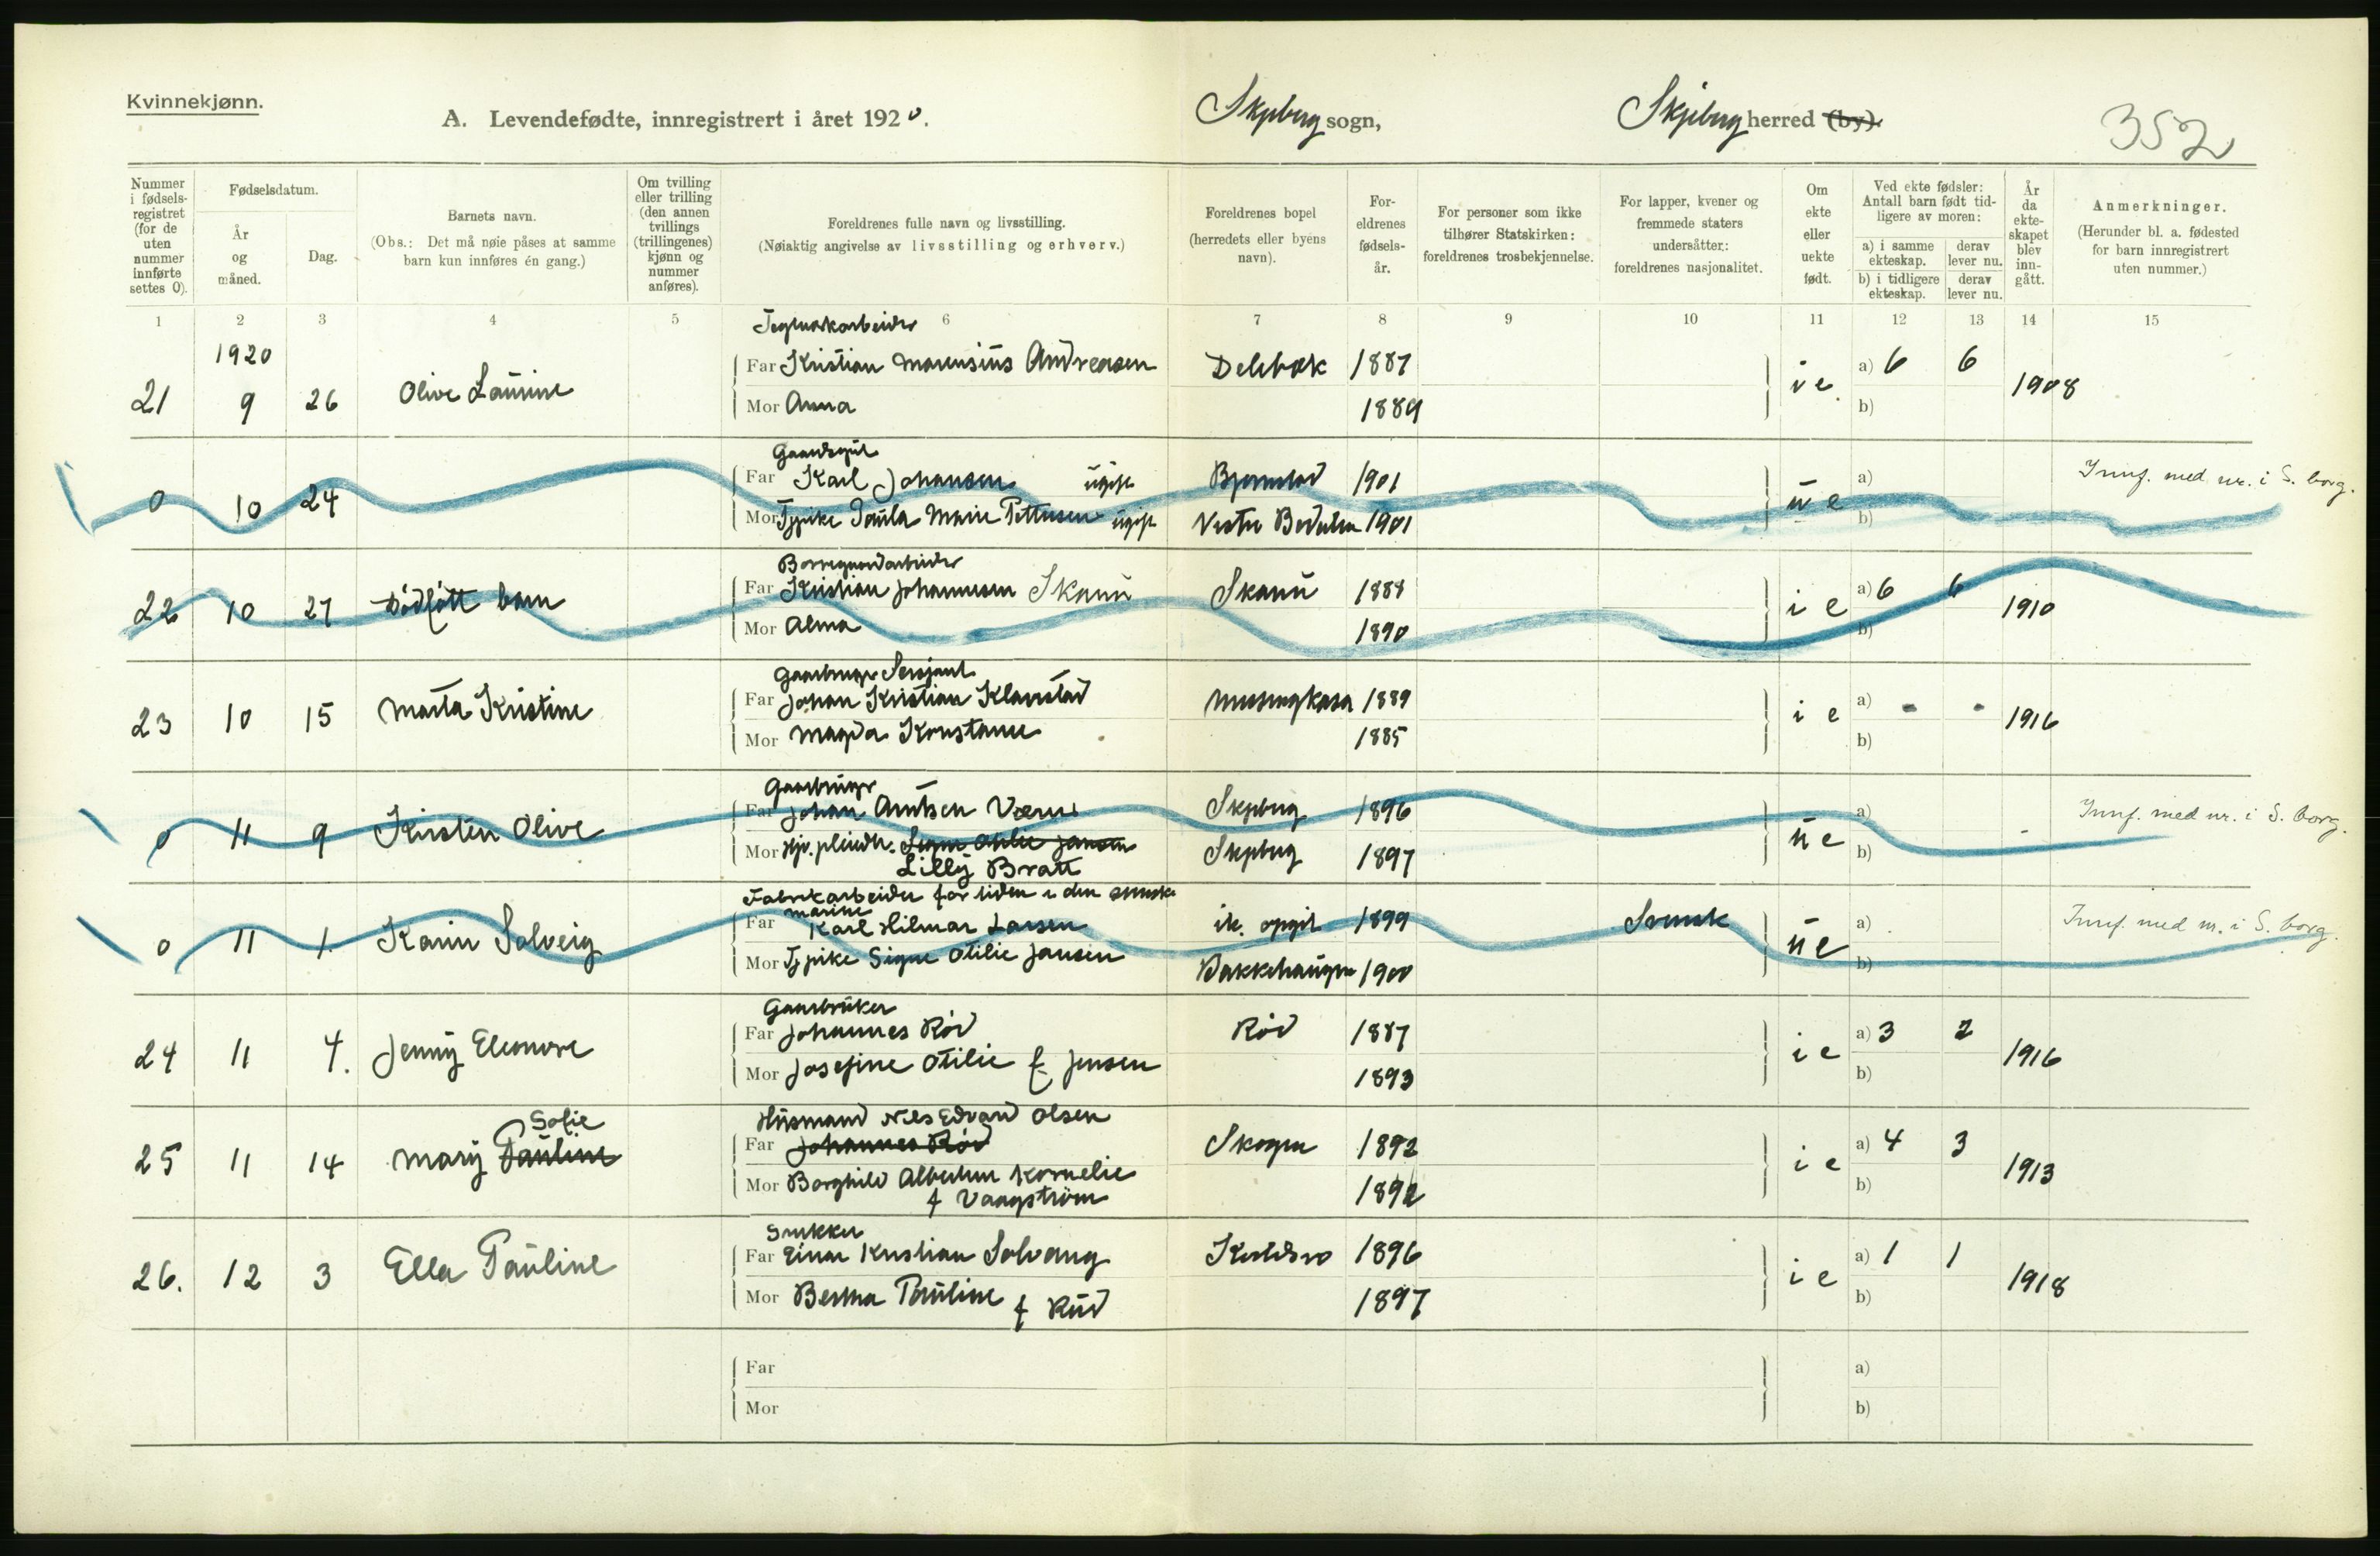 Kvinnekjønn.
A. Levendefødte, innregistrert i året 1920.
Skjeberg sogn,
Skjeberg herred (by).
352
Nummer i fødselsregistret (for de uten nummer innførte settes 0).
Fødselsdatum.
År og måned.
Dag.
Barnets navn.
(Obs.: Det må nøie påses at samme barn kun innføres én gang.)
Om tvilling eller trilling (den annen tvillings (trillingenes) kjønn og nummer anføres).
Foreldrenes fulle navn og livsstilling.
(Nøiaktig angivelse av livsstilling og erhverv.)
Foreldrenes bopel (herredets eller byens navn).
Foreldrenes fødselsår.
For personer som ikke tilhører Statskirken: foreldrenes trosbekjennelse.
For lapper, kvener og fremmede staters undersåtter: foreldrenes nasjonalitet.
Om ekte eller uekte født.
Ved ekte fødsler: Antall barn født tidligere av moren:
a) i samme ekteskap.
derav lever nu.
b) i tidligere ekteskap.
derav lever nu.
År da ekteskapet blev inngått.
Anmerkninger.
(Herunder bl. a. fødested for barn innregistrert uten nummer.)
1 2 3 4 5 6 7 8 9 10 11 12 13 14 15
Teglverkarbeider
1920
Far Kristian Marensius Andreasen Delebæk 1887 a) 6 6
21 9 26 Olive Laurine ie 1908
Mor Anna 1889 b)
Gaardsgut
Far Karl Johansen ugift Bjørnstad 1901 a) Innf. med nr. i S. borg.
0 10 24 ue
Mor Tjpike Paula Marie Pettersen ugift 1901 b)
Borregaardarbeider
Far Kristian Johannesen Skanu Skanu 1888 a) 6 6
22 10 27 Dödfött barn ie 1910
Mor Alma 1890 b)
Gaarbruger Sersjant
Far Johan Kristian Klavestad 1889 a) - -
23 10 15 Marta Kristine ie 1916
Mor Magda Konstanse 1885 b)
Gaarbruger
Far Johan Amtsen Skjeberg 1896 a) Innf. med nr. i S. borg.
0 11 9 Kirsten Olive ue
Mor Signe Otilie Jansen Skjeberg 1897 b)
Lilly Bratt
Fabrikarbeider for tiden i den svenske
marine
Far Karl Hilmar Larsen ik. opgit 1899 Svensk a) Innf. med nr. i S. borg.
0 11 1. Karin Solveig ue
Mor Tjpike Signe Otilie Jansen 1900 b)
Gaarbruker
Far Johannes Röd Röd 1887 a) 3 2
24 11 4. Jenny Eleonore ie 1916
Mor Josefine Otilie f Jensen 1893 b)
Husmand Nils Edvard Olsen
Sofie
Far Johannes Röd Skogen 1892 a) 4 3
25 11 14 Mary Pauline ie 1913
Mor Borghild Albertine Kornelie 1892 b)
f Vaagström
Snekker
Far Einar Kristian Solvang 1896 a) 1 1
26. 12 3 Ella Pauline ie 1918
Mor Berna Pauline f Rud 1897 b)
Far a)
Mor b)